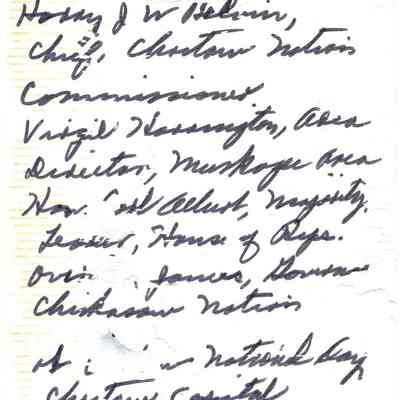 Harry J W Belvin,
Chief, Choctaw Nation
Commissioner
Virgil Harrington, Area
Director, Muskogee Area
Hon. Carl Albert, Majority
Leader, House of Reps.
James, Governor
Chickasaw Nation
Nation Day
Choctaw Capital